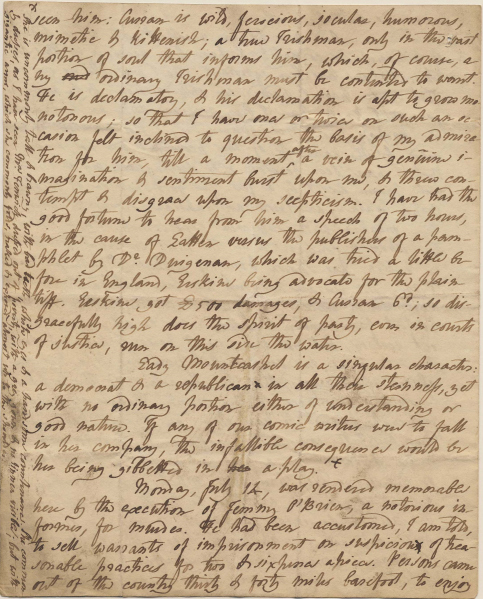 seen him: Curran is wild, ferocious, jocular, humorous,
mimetic & kittenish; a true Irishman, only in the vast
portion of soul that informs him, which, of course, a
ny ordinary Irishman must be contented to want.
He is declamatory, & his declamation is apt to grow mo
notonous; so that I have once or twice on such an oc
casion felt inclined to question the basis of my admira
tion for him, till a moment after a vein of genuine i-
magination & sentiment burst upon me, & threw con-
tempt & disgrace upon my scepticism. I have had the
good fortune to hear from him a speech of two hours,
in the cause of versus the publishers of a pam-
phlet by Dr. Duigenan, which was tried a little be
fore in England, Erskine being advocate for the plain
tiff. Erskine got £500 damages, & Curran 6d; so dis-
gracefully high does the spirit of party, even in courts
of Justice, run on this side the water.
Lady Mountcashel is a singular character:
a democrat & a republican in all their sternness, yet
with no ordinary portion either of understanding or
good nature. If any of our comic writers were to fall
in her company, the infallible consequence would be
her being gibbetted in a play. +
Monday, July 12, was rendered memorable
here by the execution of Jemmy O'Brien, a notorious in
former, for murder. He had been accustomed, I am told,
to sell warrants of imprisonment on suspicion of trea
sonable practices for two & sixpence apiece. Persons came
out of the country thirty & forty miles barefoot, to enjoy